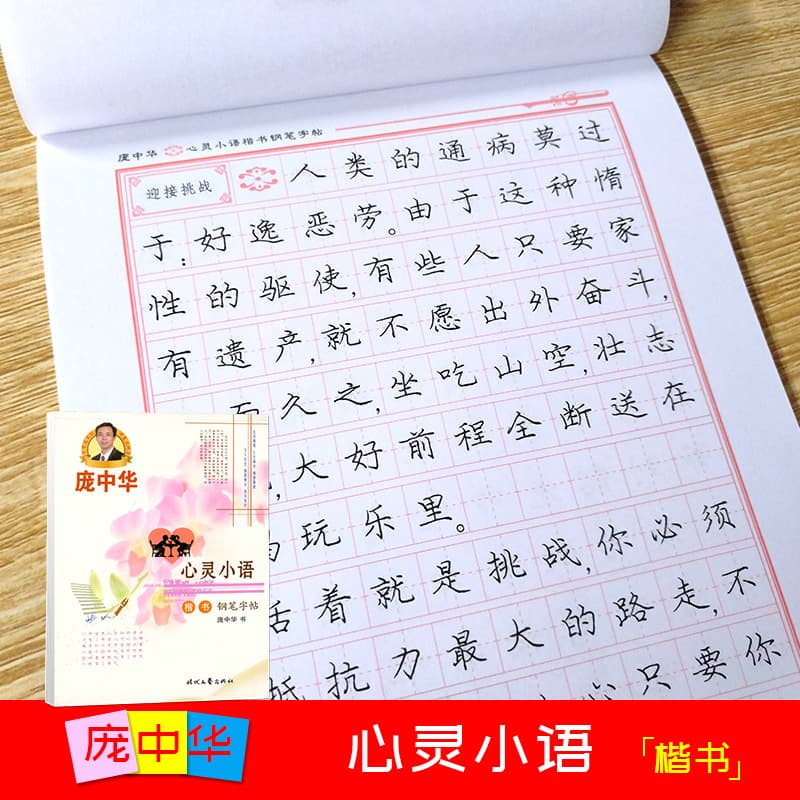 庞中华 心灵小语楷书钢笔字帖
迎接挑战
人类的通病莫过
于:好逸恶劳。由于这种惰
性的驱使,有些人只要家
有遗产,就不愿出外奋斗,
久之,坐吃山空,壮志
大好前程全断送在
玩乐里。
活着就是挑战,你必须
抵抗力最大的路走,不
心只要你
庞中华
心灵小语
楷书 钢笔字帖
庞中华 书
时代文艺出版社
庞中华
心灵小语
「楷书」